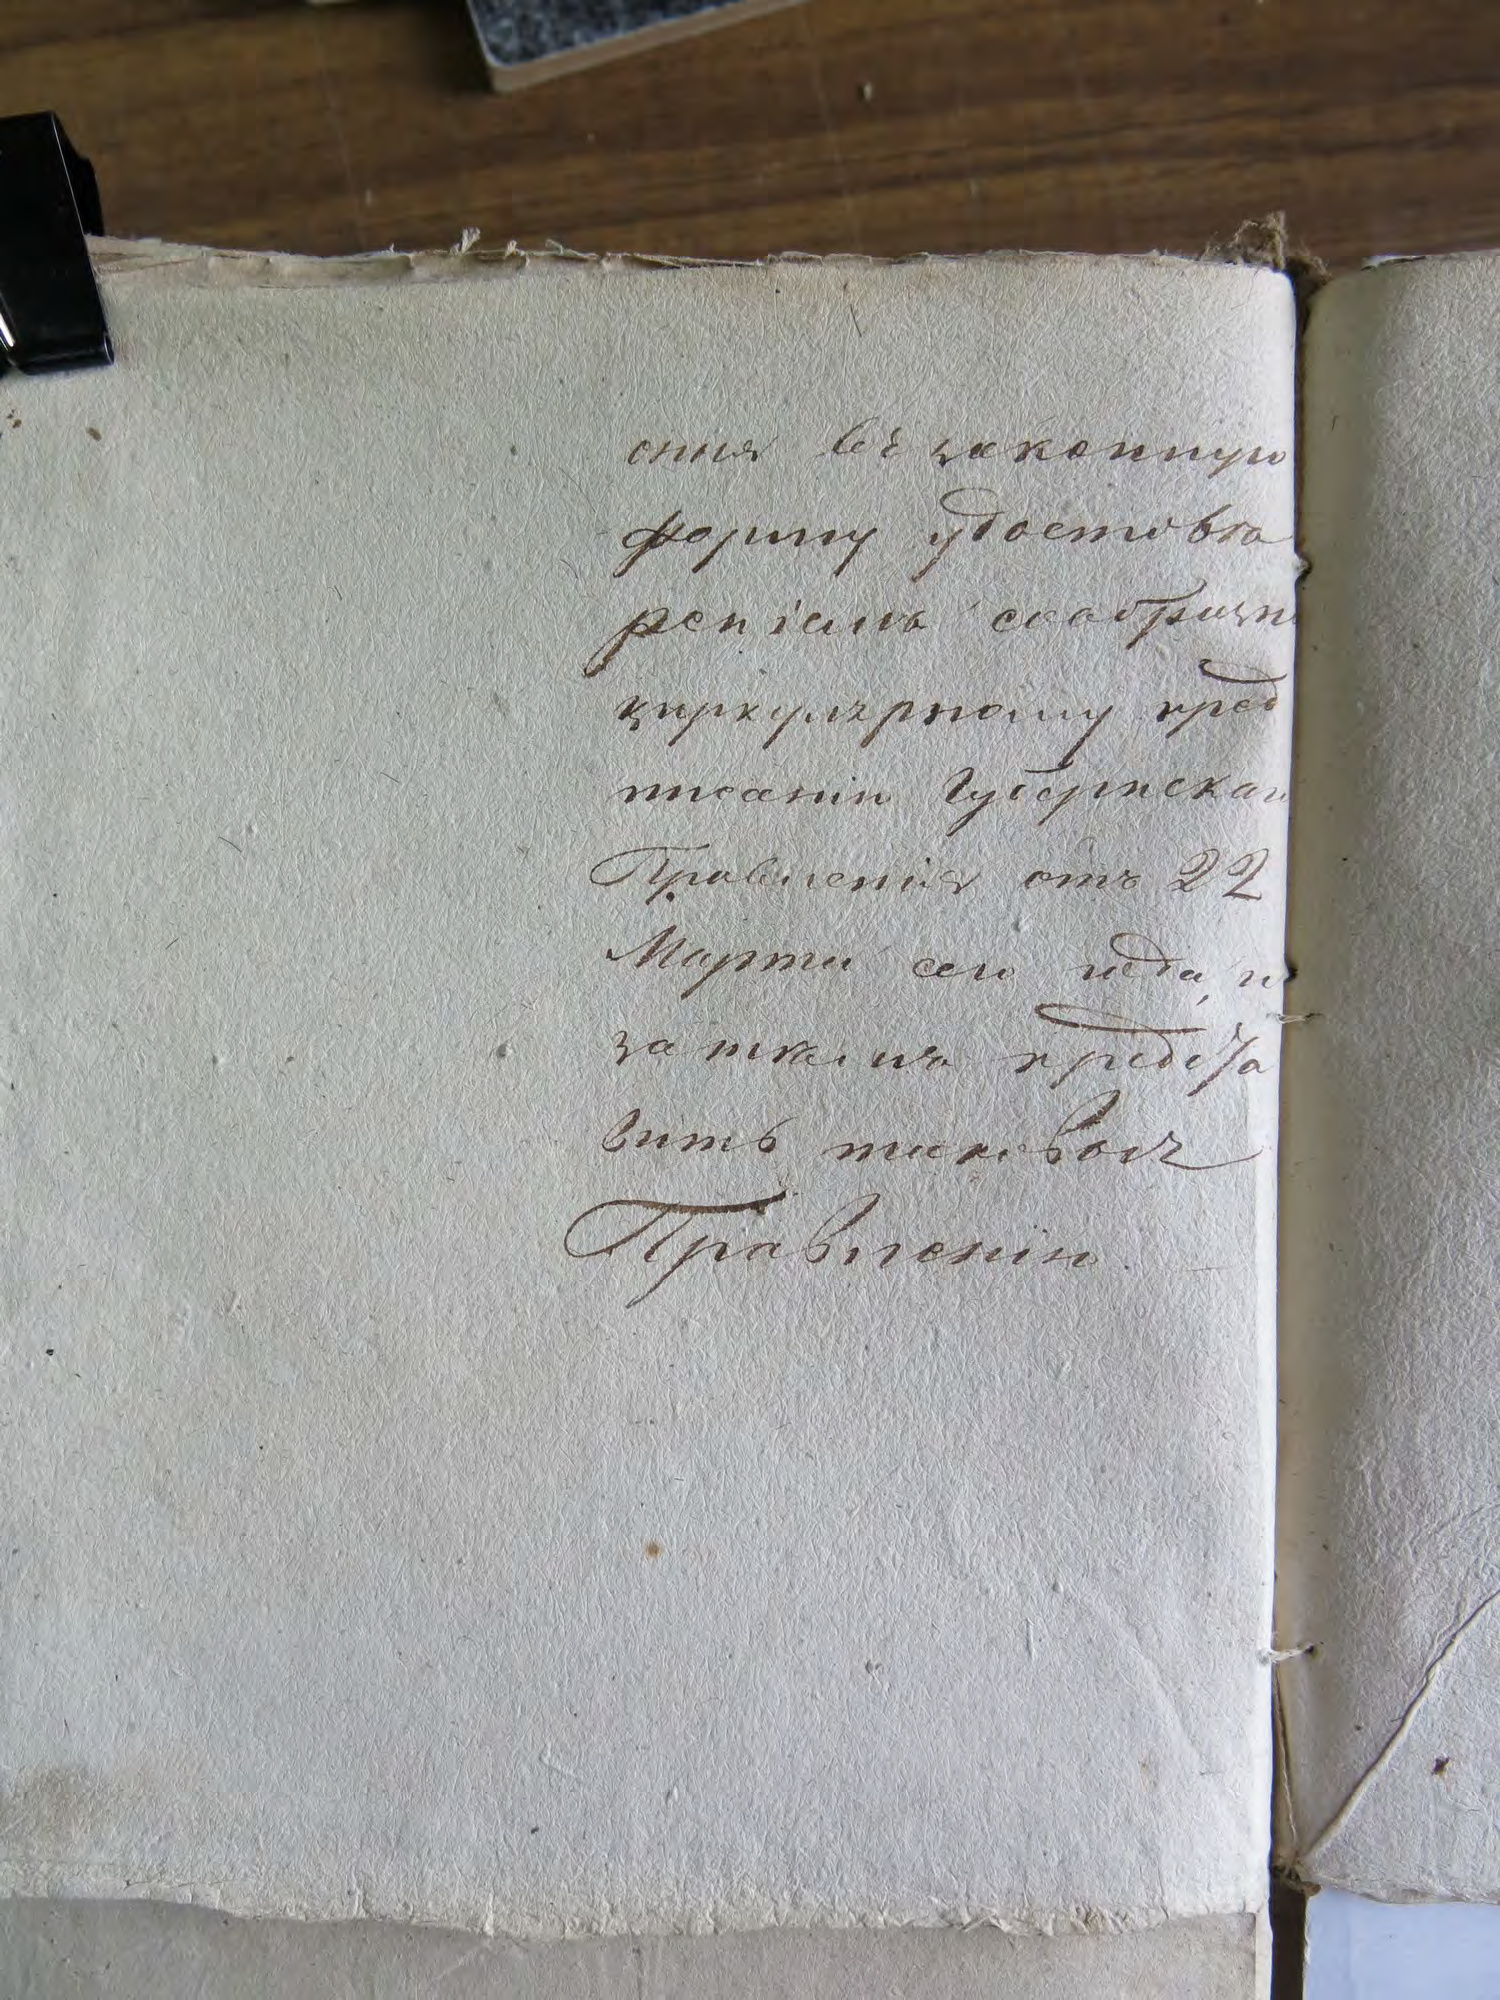 оныя въ законную
форму удостовѣ
реніямъ сообразно
циркулярному пред
писанію Губернскаго
Правленія отъ 22
Марта сего года, и
за тѣмъ предста
вить таковыя
Правленію.